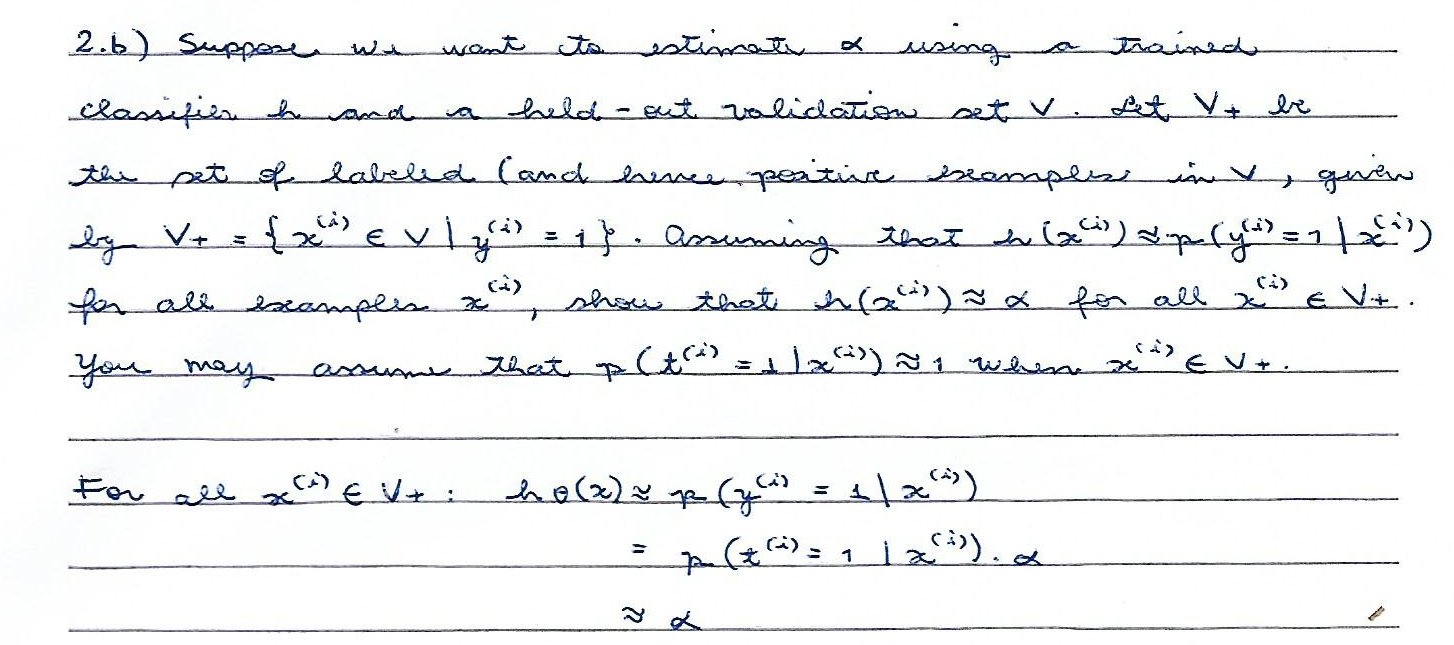 2.b) Suppose we want to estimate α using a trained
classifier h and a held-out validation set V. Let V+ be
the set of labeled (and hence positive examples in V, given
by V+ = {x^(i) ∈ V | y^(i) = 1}. Assuming that h(x^(i)) ≈ p(y^(i) = 1 | x^(i))
for all examples x^(i), show that h(x^(i)) ≈ α for all x^(i) ∈ V+.
You may assume that p(t^(i) = 1 | x^(i)) ≈ 1 when x^(i) ∈ V+.
For all x^(i) ∈ V+: hθ(x) ≈ p(y^(i) = 1 | x^(i))
= p(t^(i) = 1 | x^(i)). α
≈ α